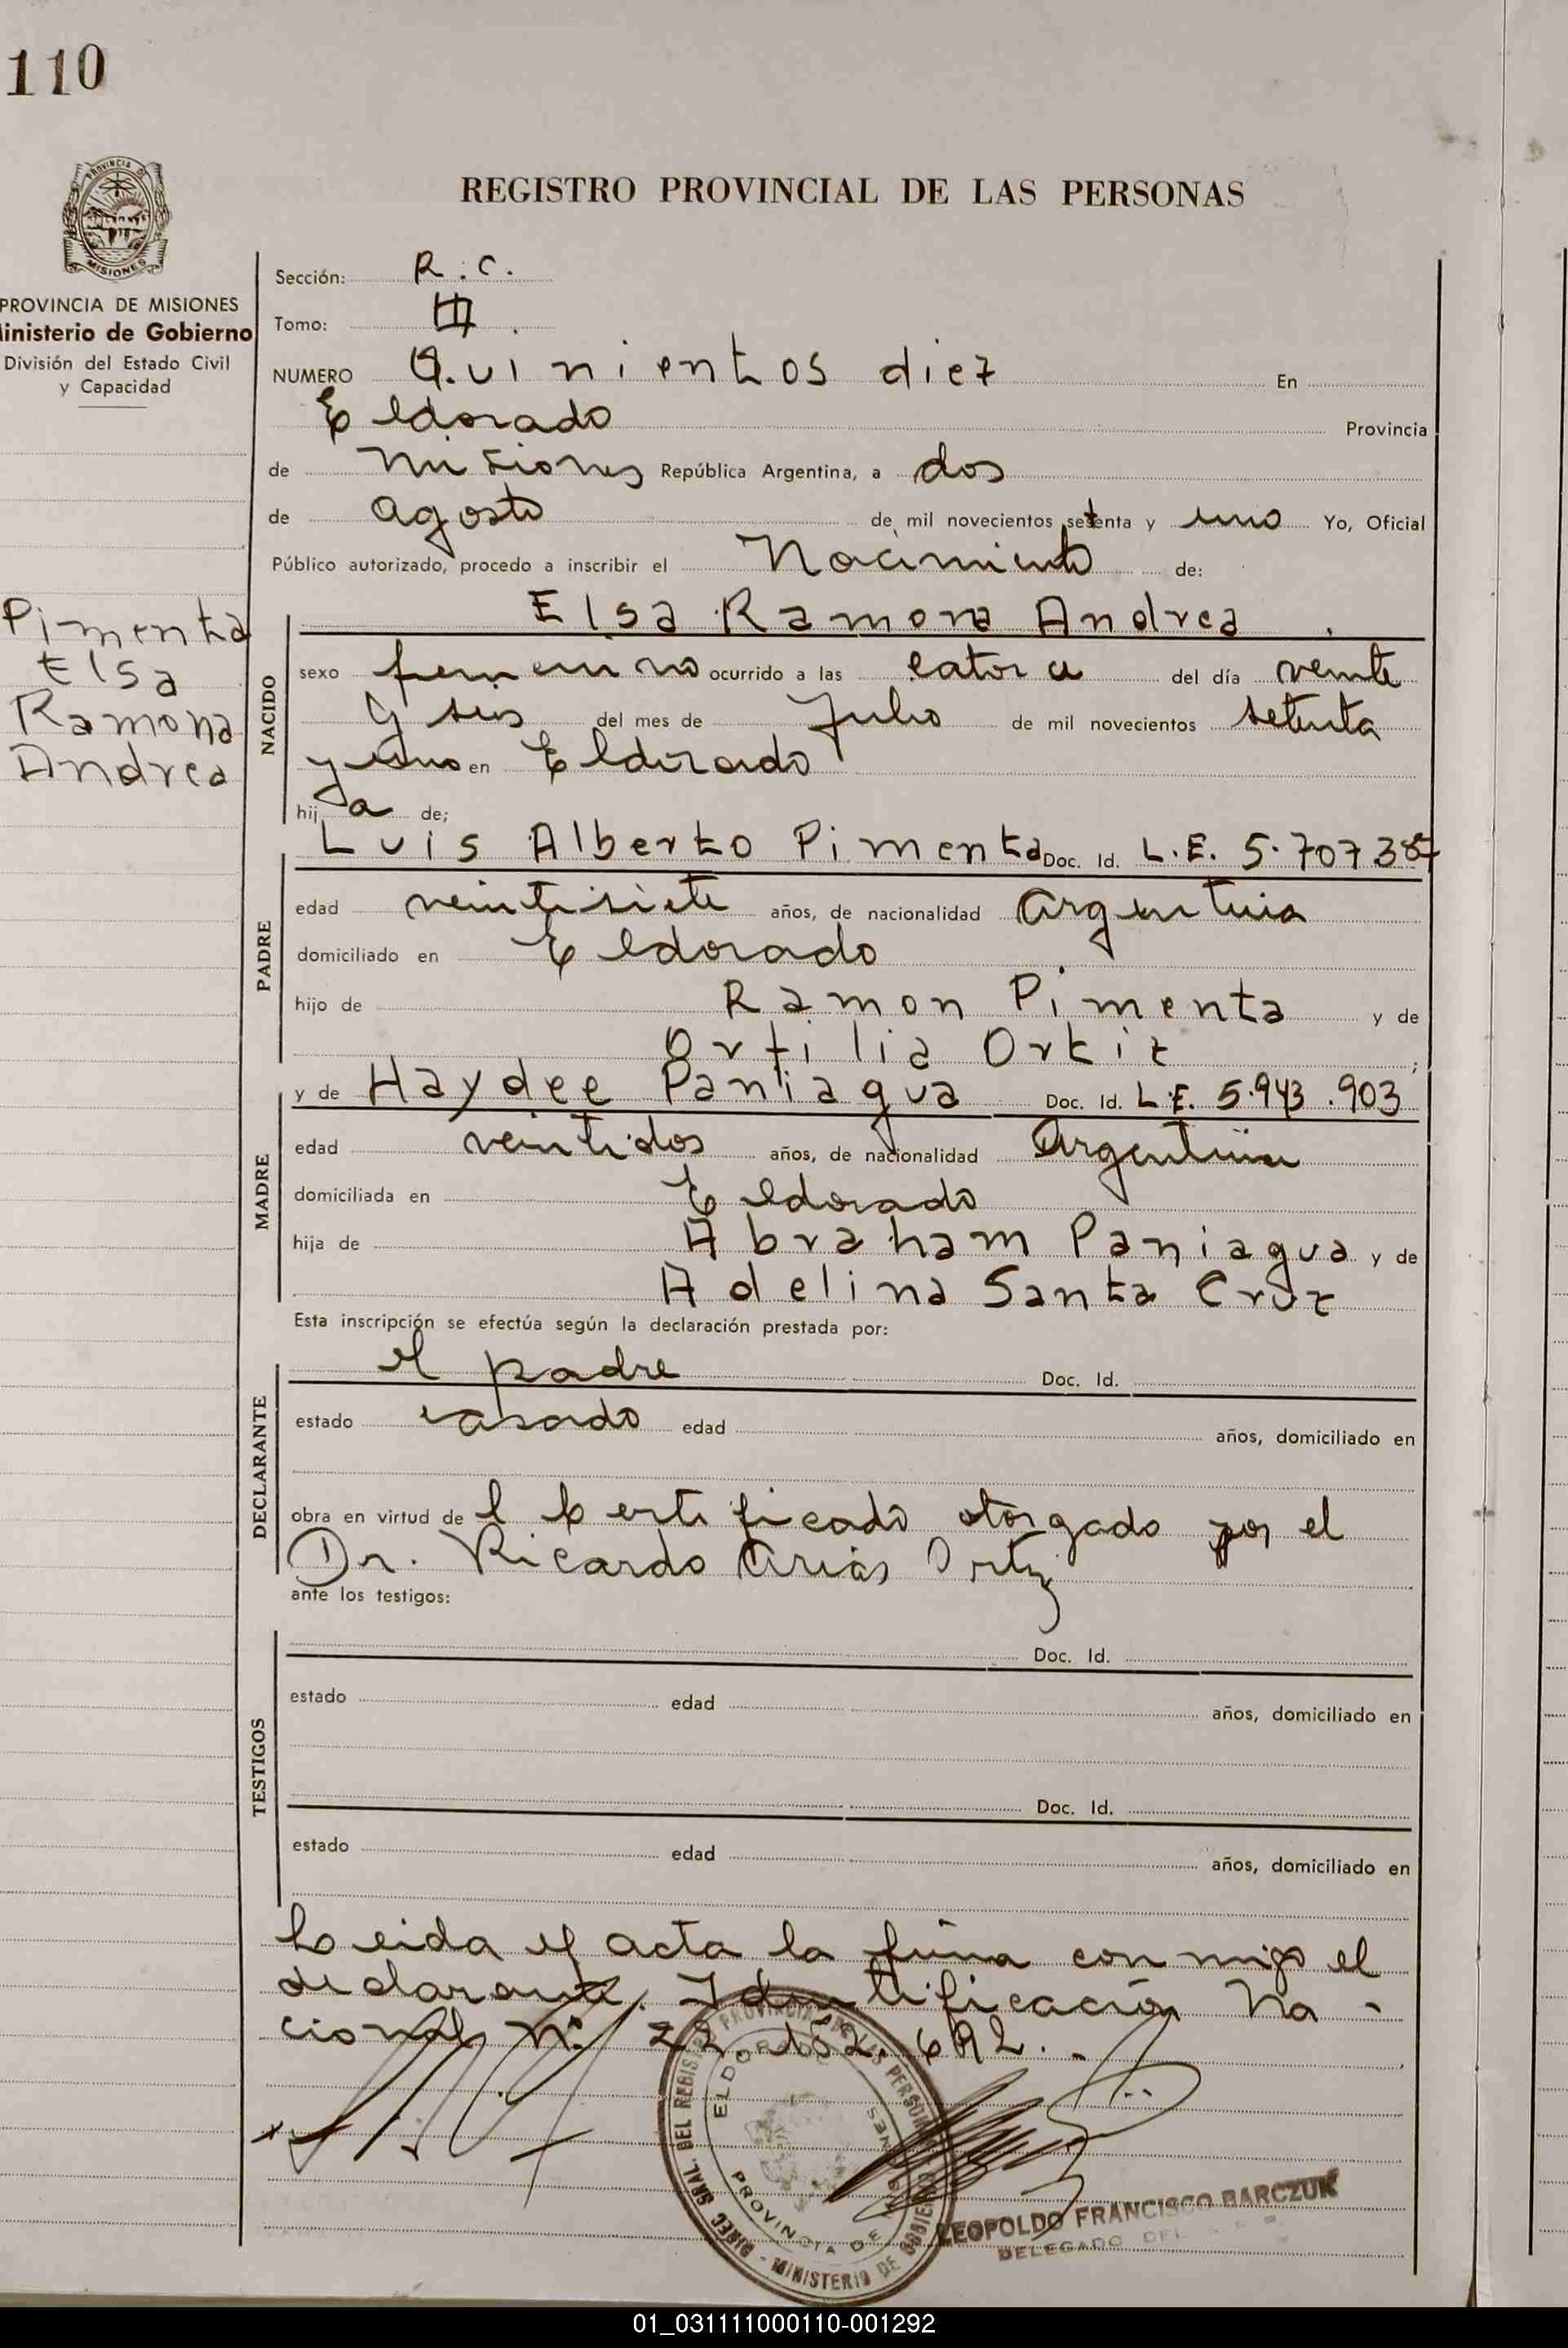 110
PROVINCIA DE
MISIONES
REGISTRO PROVINCIAL DE LAS PERSONAS
PROVINCIA DE MISIONES
Ministerio de Gobierno
División del Estado Civil
y Capacidad
Pimenta
Elsa
Ramona
Andrea
Sección: R.C.
Tomo: III
NUMERO Quinientos diez En
Eldorado Provincia
de Misiones República Argentina, a dos
de agosto de mil novecientos setenta y uno Yo, Oficial
Público autorizado, procedo a inscribir el Nacimiento de:
NACIDO
Elsa Ramona Andrea
sexo femenino ocurrido a las catorce del día veinte
y seis del mes de Julio de mil novecientos setenta
y uno en Eldorado
hija de;
PADRE
Luis Alberto Pimenta Doc. Id. L.E. 5.707.387
edad veintisiete años, de nacionalidad Argentina
domiciliado en Eldorado
hijo de Ramon Pimenta y de
Ortilia Ortiz ;
MADRE
y de Haydee Paniagua Doc. Id. L.E. 5.943.903
edad veintidos años, de nacionalidad Argentina
domiciliada en Eldorado
hija de Abraham Paniagua y de
Adelina Santa Cruz
Esta inscripción se efectúa según la declaración prestada por:
DECLARANTE
el padre Doc. Id.
estado casado edad años, domiciliado en
obra en virtud del certificado otorgado por el
Dr. Ricardo Arias Ortiz
ante los testigos:
TESTIGOS
Doc. Id.
estado edad años, domiciliado en
Doc. Id.
estado edad años, domiciliado en
Leida el acta la firma con migo el
declarante. Identificación Na-
cional Nº 22.
DIREC. GRAL. DEL REGISTRO PROVINCIAL DE LAS PERSONAS - MINISTERIO DE GOBIERNO
ELDORADO
PROVINCIA DE MISIONES
LEOPOLDO FRANCISCO BARCZUK
DELEGADO DEL
01_031111000110-001292